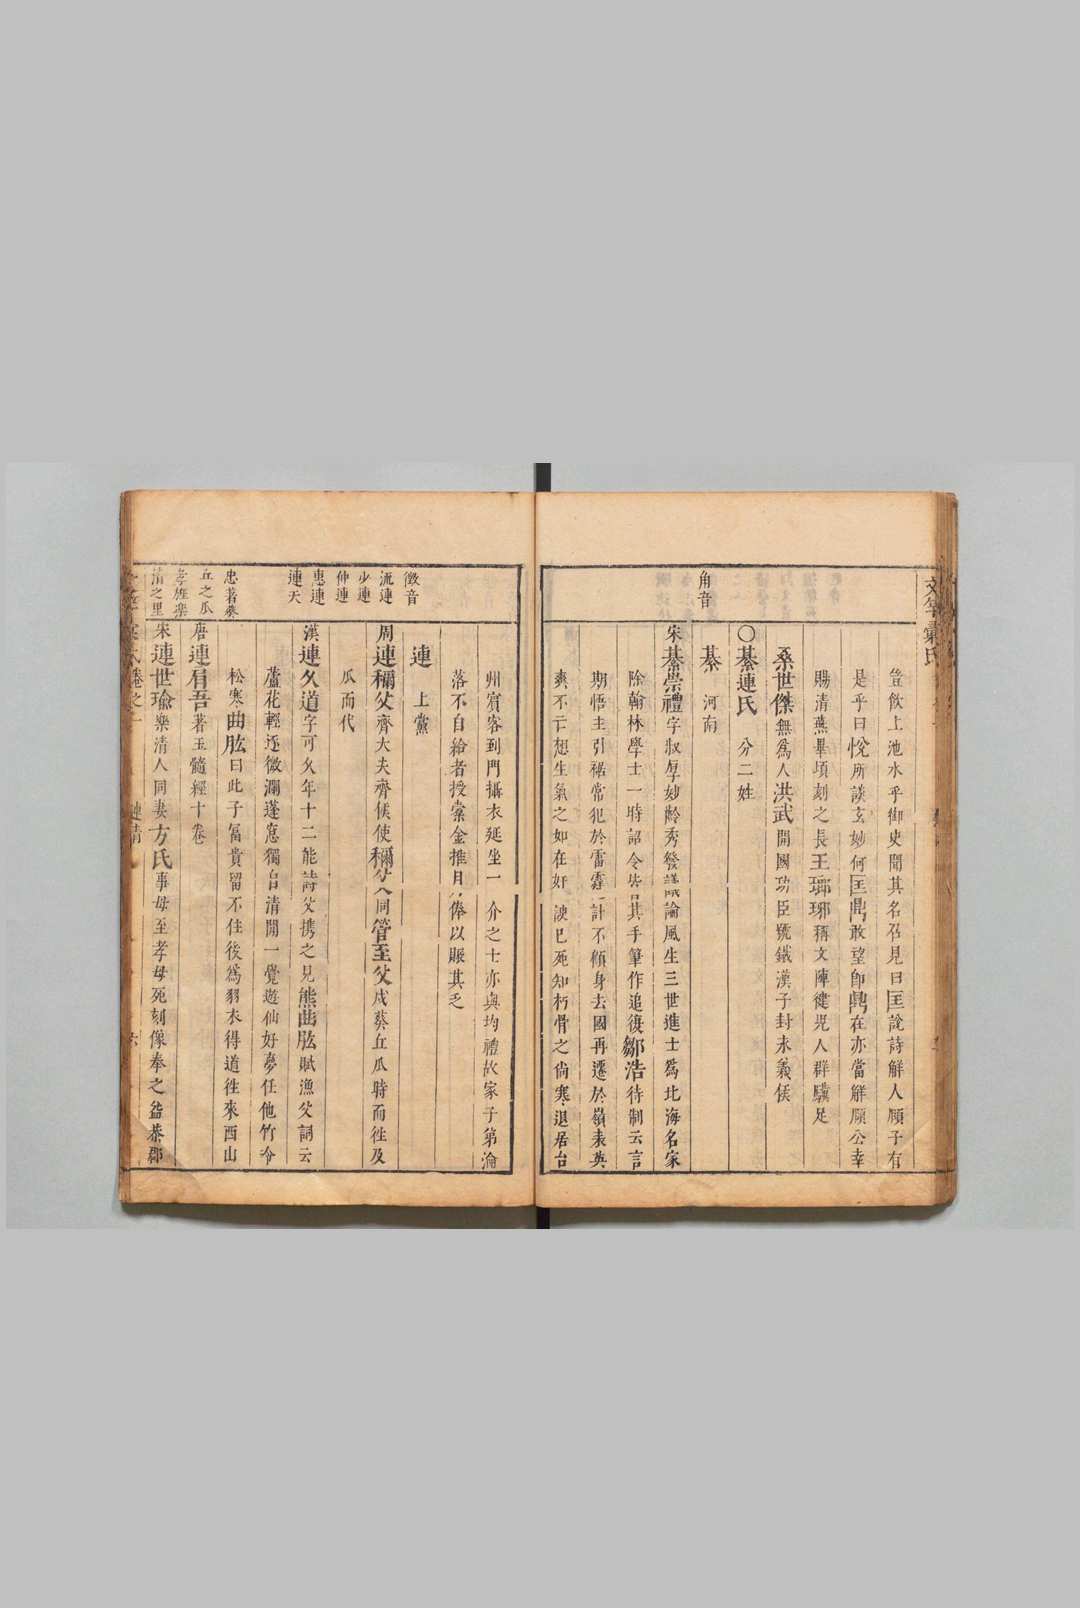 登飲上池水乎御史聞其名召見曰匡說詩解人頤子有
是乎曰悅所談玄妙何匡鼎敢望卽鼎在亦當解頤公幸
賜清燕畢頃刻之長王瑯琊稱文陣健兒人群驥足
桑世傑無爲人洪武開國功臣號鐵漢子封永義侯
○綦連氏 分二姓
角音
綦 河南
宋綦崇禮字叔厚妙齡秀發議論風生三世進士爲北海名家
除翰林學士一時詔令皆其手筆作追復鄒浩待制云言
期悟主引裾常犯於雷霆計不傾身去國再遷於嶺表英
爽不亡想生氣之如在奸諛已死知朽骨之尚寒退居台
州賓客到門攝衣延坐一介之士亦與均禮故家子第淪
落不自給者授橐金推月俸以賑其乏
徵音
連 上黨
流連
少連
仲連
惠連
連天
周連稱父齊大夫齊侯使稱父同管至父戍葵丘瓜時而徃及
瓜而代
漢連久道字可久年十二能詩父携之見熊曲肱賦漁父詞云
蘆花輕逐微瀾蓬窻獨自清閒一覺遊仙好夢任他竹冷
松寒曲肱曰此子富貴留不住後爲羽衣得道徃來西山
忠著
丘之瓜
清之里
唐連肩吾著玉髓經十卷
宋連世瑜樂清人同妻方氏事母至孝母死刻像奉之益恭郡